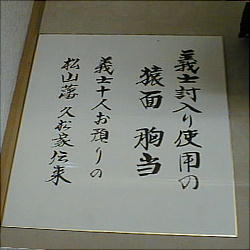 義士討入り使用の
猿面 胸当
義士十人お預りの
松山藩 久松家伝来